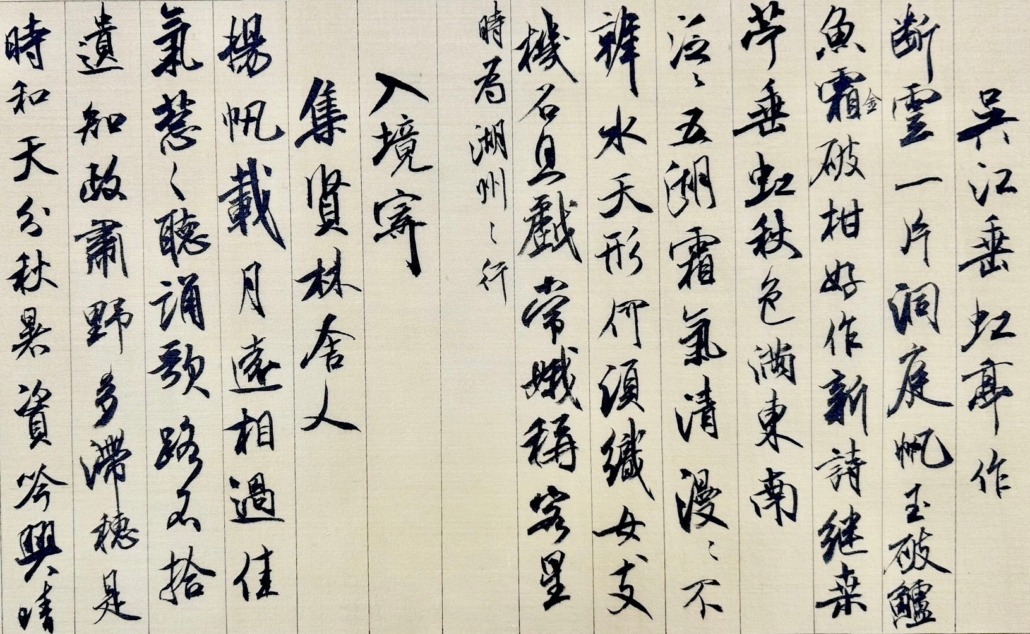 吳江垂虹亭作
断雲一片洞庭帆玉破鱸
魚霜金破柑好作新詩继桒
苧垂虹秋色满東南
泛〻五湖霜氣清漫〻不
辨水天形何須織女支
機石且戲常娥稱客星
時为湖州〻行
入境寄
集賢林舍人
揚帆載月遠相過佳
氣葱〻聽誦歌路不拾
遺知政肅野多滯穗是
時和天分秋暑資吟興晴